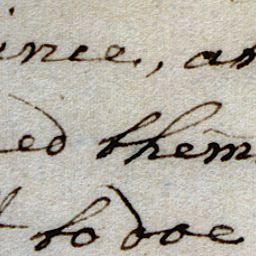 ince, an
ed them
to doe